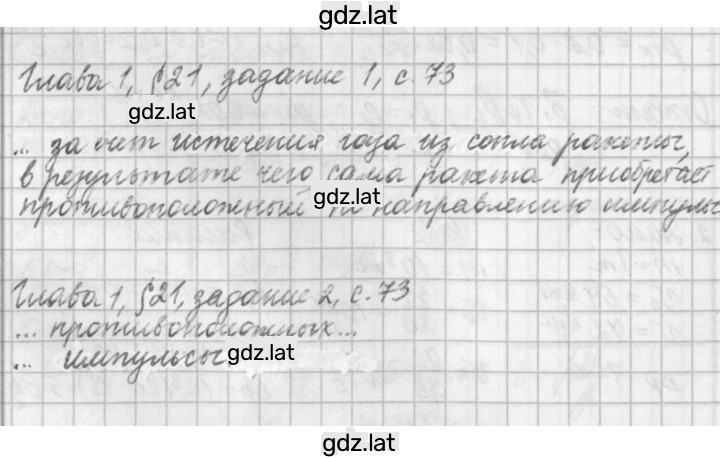 gdz.lat
Глава 1, §21, задание 1, с. 73
gdz.lat
... за счет истечения газа из сопла ракеты,
в результате чего сама ракета приобретает
gdz.lat
противоположный по направлению импульс
Глава 1, §21, задание 2, с. 73
... противоположных...
... импульсы
gdz.lat
gdz.lat